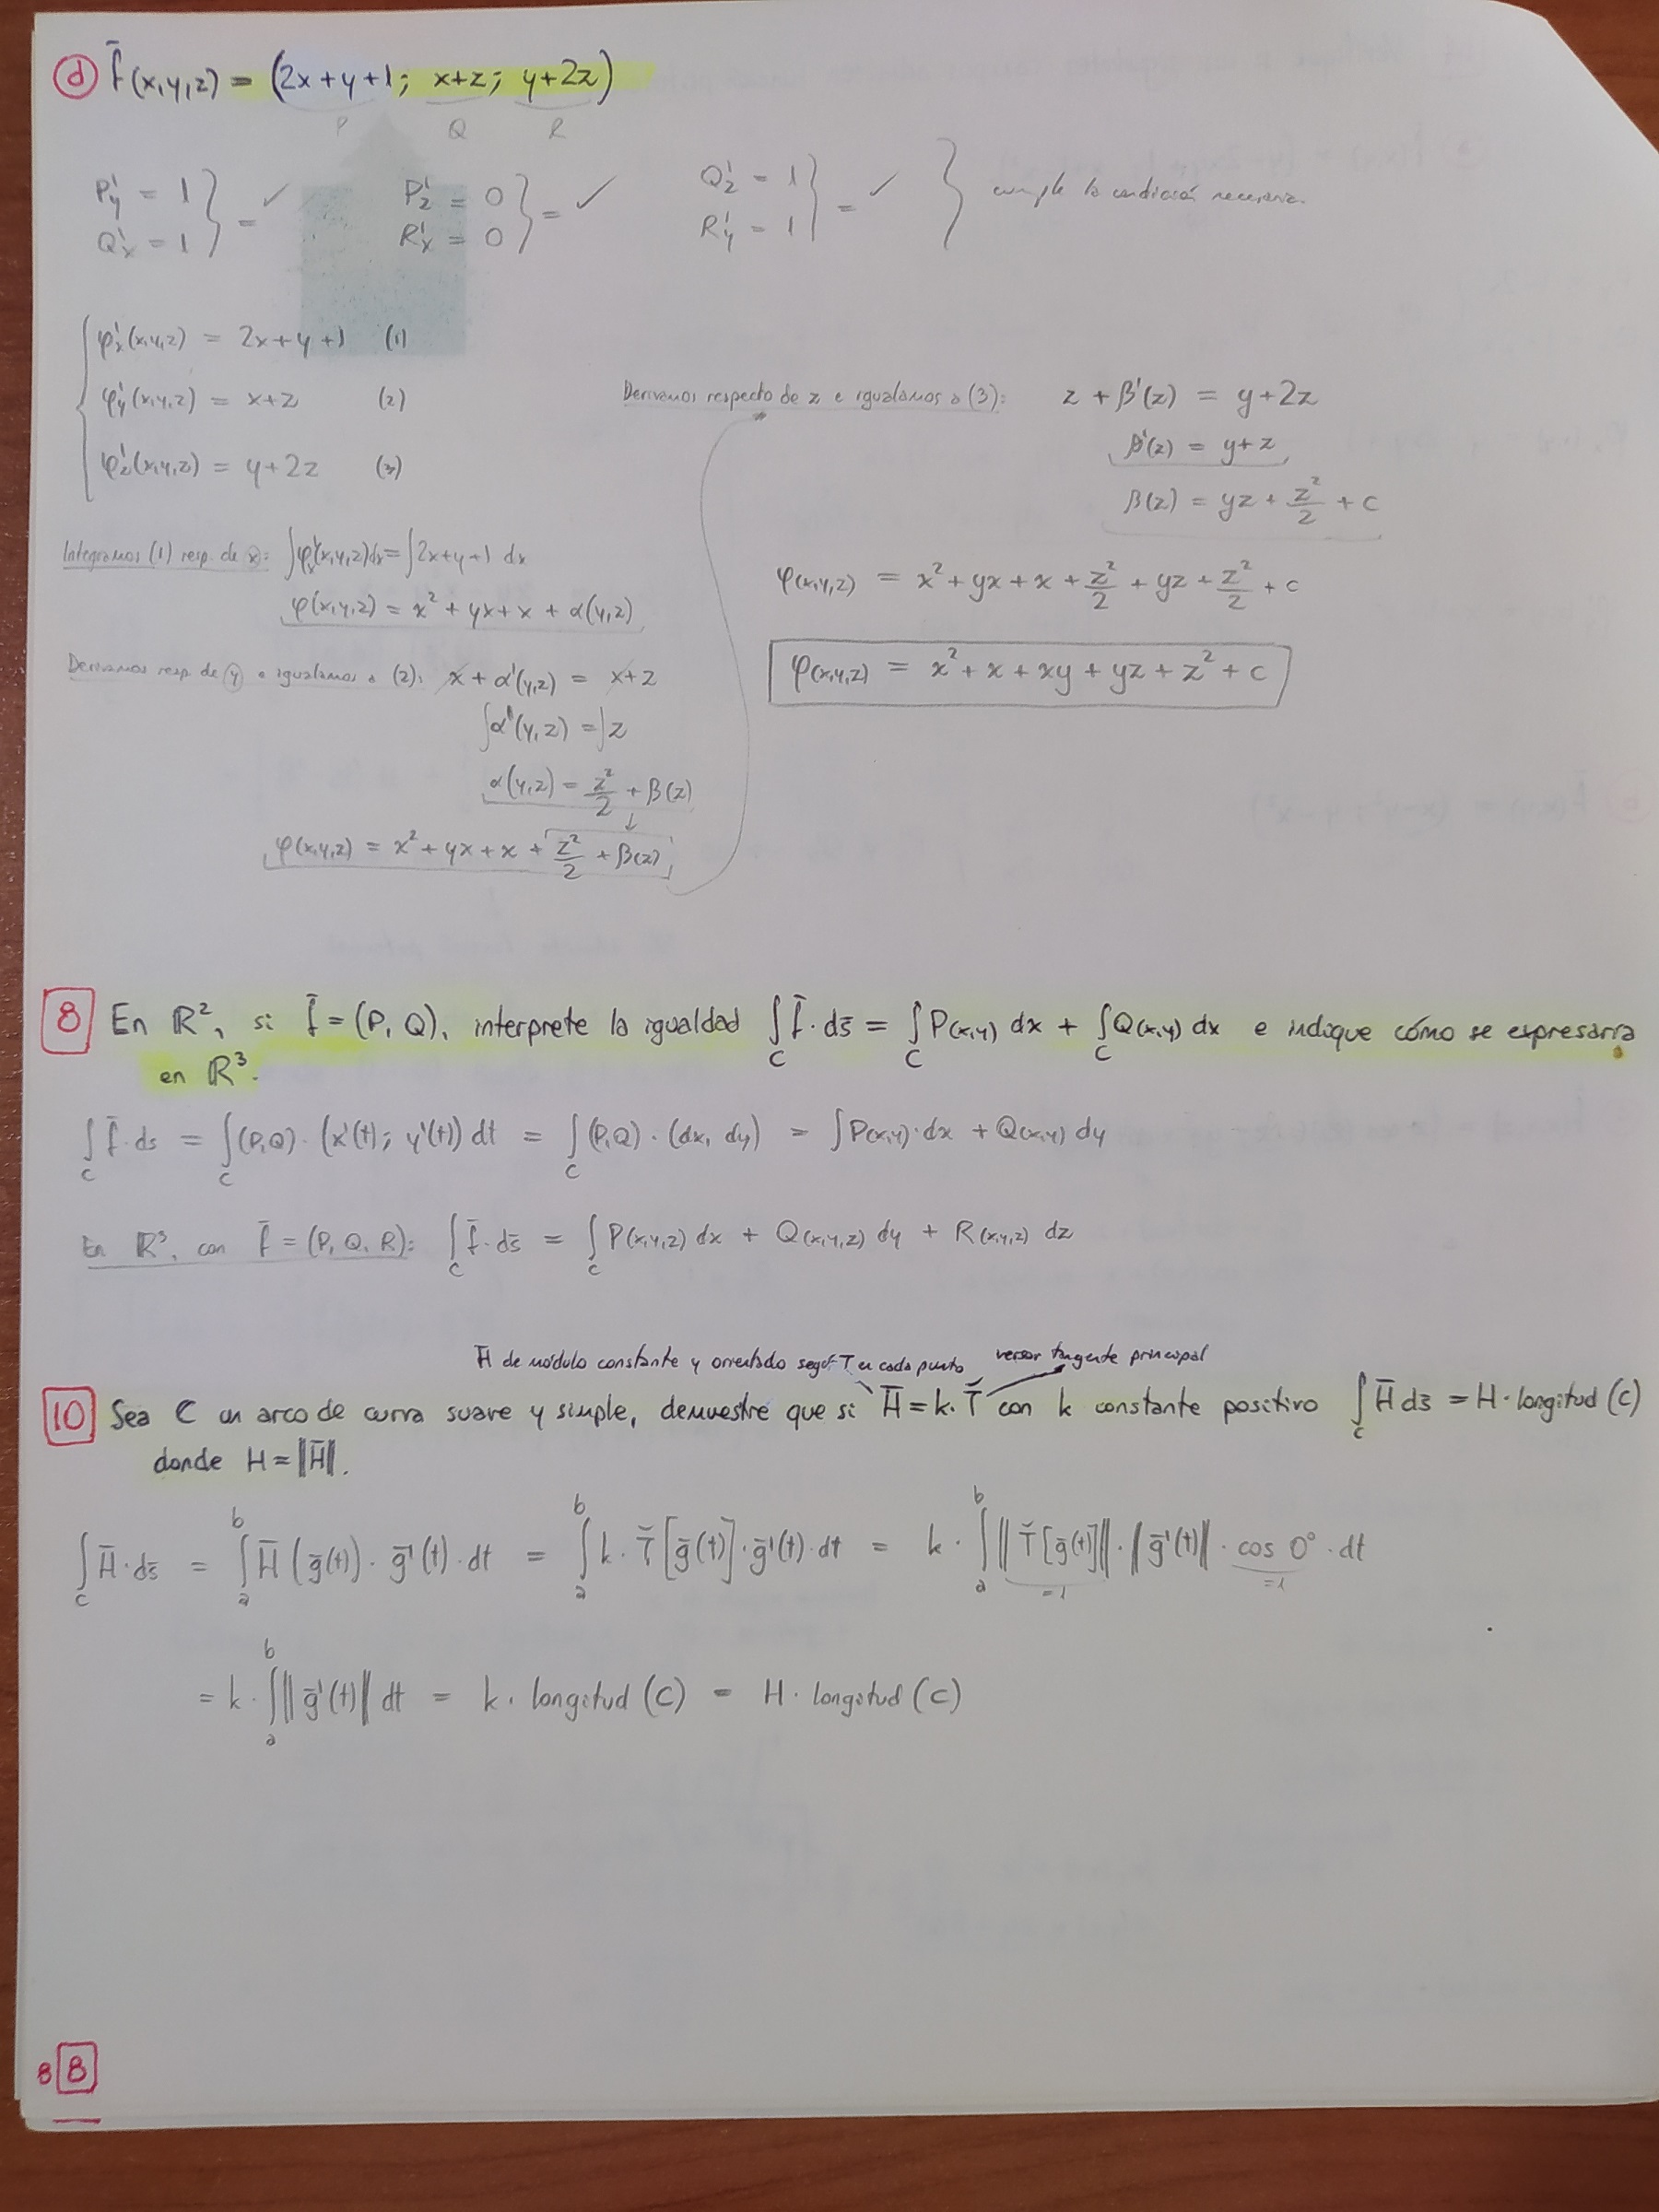 d f̄(x,y,z) = (2x+y+1; x+z; y+2z)
P Q R
P'y = 1 } = ✓ P'z = 0 } = ✓ Q'z = 1 } = ✓ } cumple la condición necesaria.
Q'x = 1 R'x = 0 R'y = 1
φ'x(x,y,z) = 2x+y+1 (1)
φ'y(x,y,z) = x+z (2)
φ'z(x,y,z) = y+2z (3)
Integramos (1) resp. de x: ∫φ'x(x,y,z)dx = ∫2x+y+1 dx
φ(x,y,z) = x² + yx + x + α(y,z)
Derivamos resp. de y e igualamos a (2): x + α'(y,z) = x+z
∫α'(y,z) = ∫z
α(y,z) = z²/2 + β(z)
↓
φ(x,y,z) = x² + yx + x + z²/2 + β(z)
Derivamos respecto de z e igualamos a (3): z + β'(z) = y+2z
β'(z) = y+z
β(z) = yz + z²/2 + c
φ(x,y,z) = x² + yx + x + z²/2 + yz + z²/2 + c
φ(x,y,z) = x² + x + xy + yz + z² + c
8 En ℝ², si f̄ = (P, Q), interprete la igualdad ∫C f̄·ds̄ = ∫C P(x,y) dx + ∫C Q(x,y) dx e indique cómo se expresaría
en ℝ³.
∫C f̄·ds = ∫C (P,Q)·(x'(t); y'(t)) dt = ∫C (P,Q)·(dx, dy) = ∫P(x,y)·dx + Q(x,y) dy
En ℝ³, con f̄ = (P, Q, R): ∫C f̄·ds̄ = ∫C P(x,y,z) dx + Q(x,y,z) dy + R(x,y,z) dz
H̄ de módulo constante y orientado según T en cada punto versor tangente principal
10 Sea C un arco de curva suave y simple, demuestre que si H̄ = k·T̆ con k constante positivo ∫C H̄ ds̄ = H·longitud (C)
donde H = ‖H̄‖.
∫C H̄·ds̄ = ∫ab H̄(ḡ(t))·ḡ'(t)·dt = ∫ab k·T̆[ḡ(t)]·ḡ'(t)·dt = k·∫ab ‖T̆[ḡ(t)]‖·‖ḡ'(t)‖·cos 0°·dt
=1 =1
= k·∫ab ‖ḡ'(t)‖ dt = k·longitud (C) = H·longitud (C)
8 8